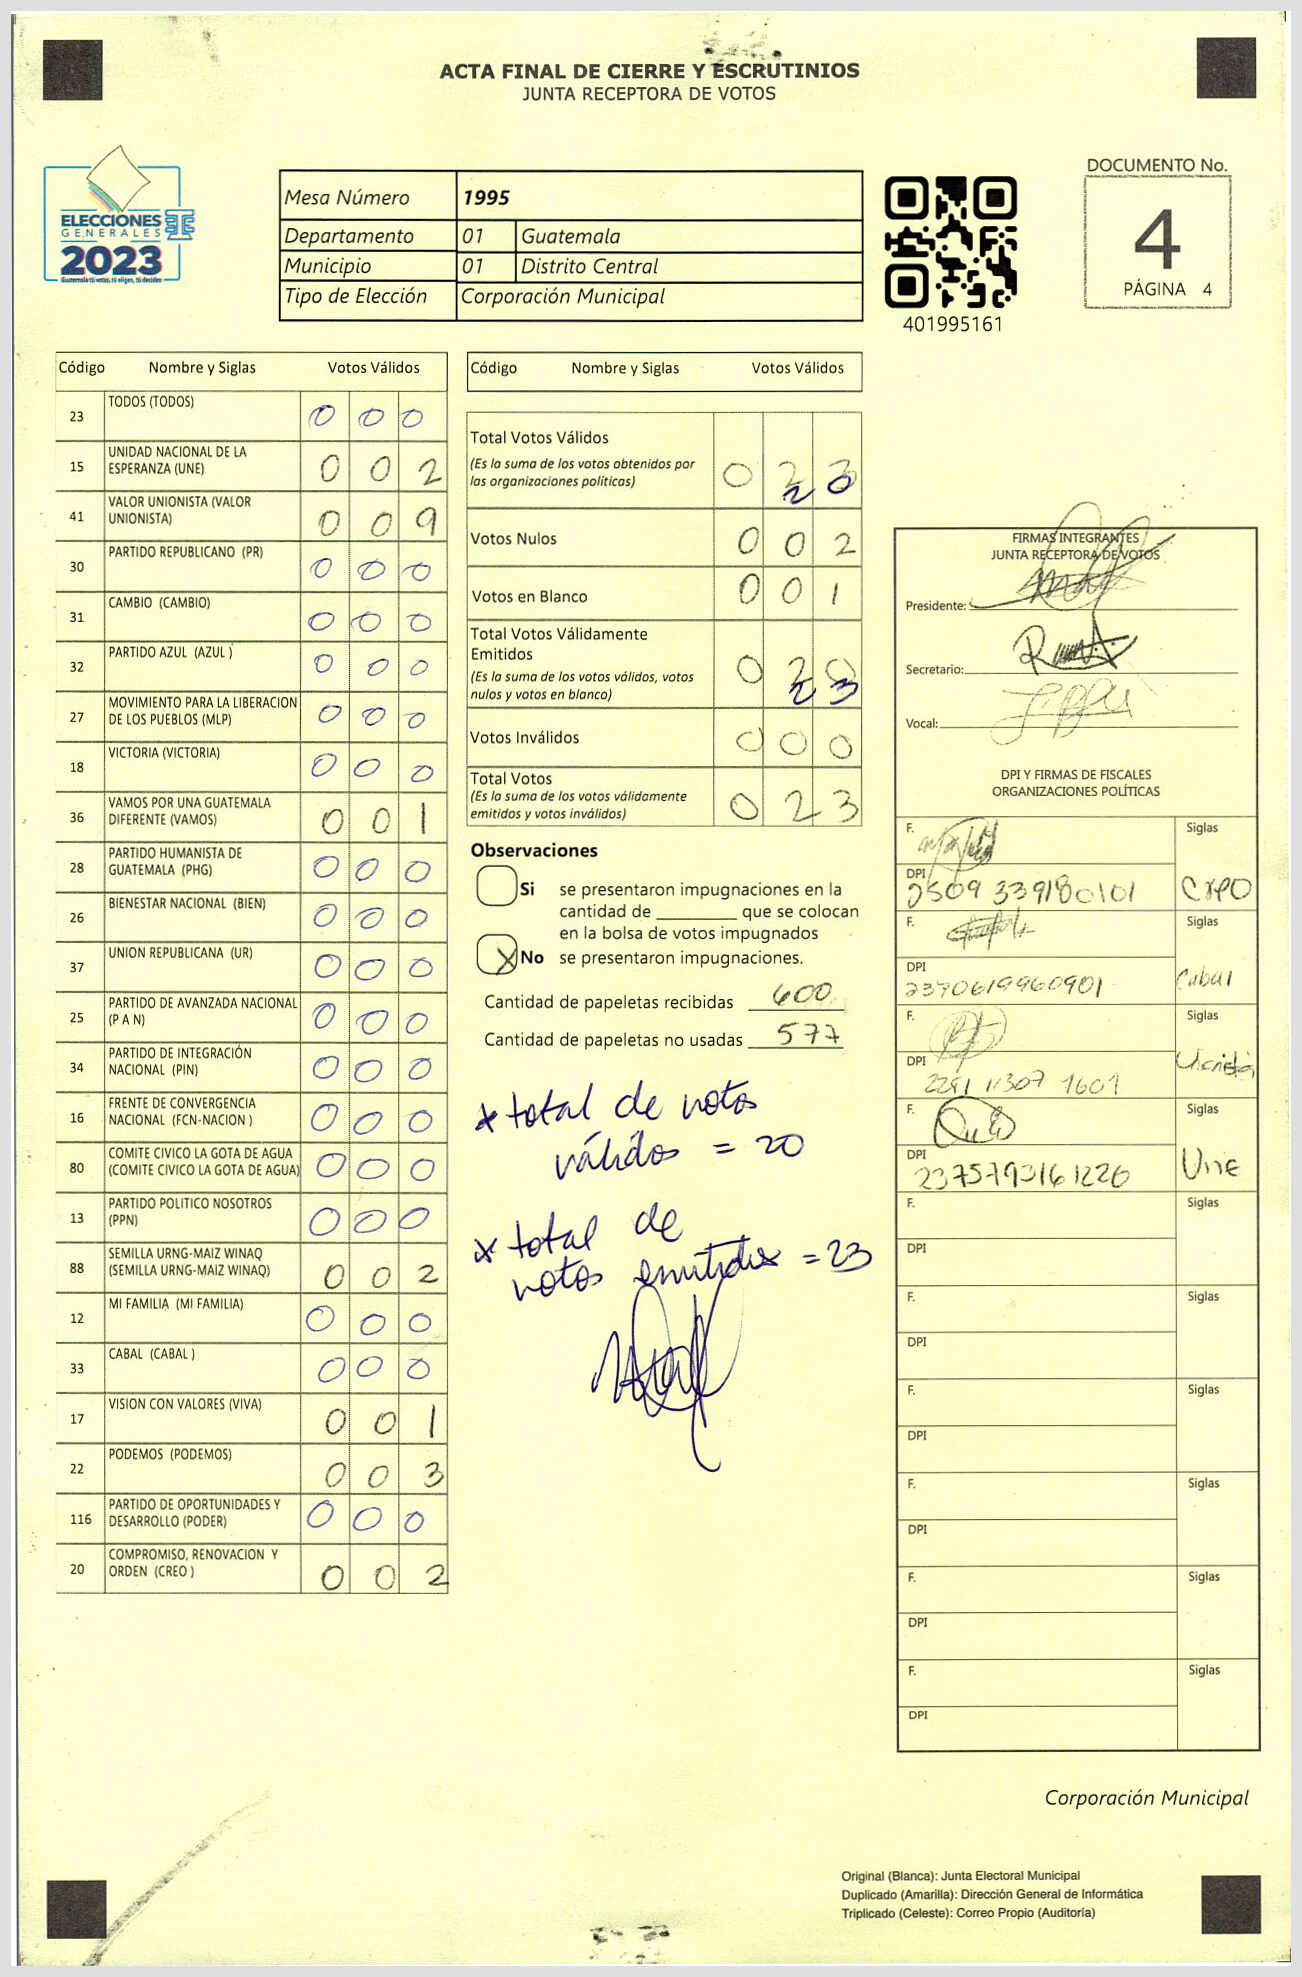 ACTA FINAL DE CIERRE Y ESCRUTINIOS
JUNTA RECEPTORA DE VOTOS
ELECCIONES
GENERALES
2023
Guatemala tú votas, tú eliges, tú decides
Mesa Número 1995
Departamento 01 Guatemala
Municipio 01 Distrito Central
Tipo de Elección Corporación Municipal
401995161
DOCUMENTO No.
4
PÁGINA 4
Código Nombre y Siglas Votos Válidos
23 TODOS (TODOS) 0 0 0
15 UNIDAD NACIONAL DE LA
ESPERANZA (UNE) 0 0 2
41 VALOR UNIONISTA (VALOR
UNIONISTA) 0 0 9
30 PARTIDO REPUBLICANO (PR) 0 0 0
31 CAMBIO (CAMBIO) 0 0 0
32 PARTIDO AZUL (AZUL ) 0 0 0
27 MOVIMIENTO PARA LA LIBERACION
DE LOS PUEBLOS (MLP) 0 0 0
18 VICTORIA (VICTORIA) 0 0 0
36 VAMOS POR UNA GUATEMALA
DIFERENTE (VAMOS) 0 0 1
28 PARTIDO HUMANISTA DE
GUATEMALA (PHG) 0 0 0
26 BIENESTAR NACIONAL (BIEN) 0 0 0
37 UNION REPUBLICANA (UR) 0 0 0
25 PARTIDO DE AVANZADA NACIONAL
(P A N) 0 0 0
34 PARTIDO DE INTEGRACIÓN
NACIONAL (PIN) 0 0 0
16 FRENTE DE CONVERGENCIA
NACIONAL (FCN-NACION ) 0 0 0
80 COMITE CIVICO LA GOTA DE AGUA
(COMITE CIVICO LA GOTA DE AGUA) 0 0 0
13 PARTIDO POLITICO NOSOTROS
(PPN) 0 0 0
88 SEMILLA URNG-MAIZ WINAQ
(SEMILLA URNG-MAIZ WINAQ) 0 0 2
12 MI FAMILIA (MI FAMILIA) 0 0 0
33 CABAL (CABAL ) 0 0 0
17 VISION CON VALORES (VIVA) 0 0 1
22 PODEMOS (PODEMOS) 0 0 3
116 PARTIDO DE OPORTUNIDADES Y
DESARROLLO (PODER) 0 0 0
20 COMPROMISO, RENOVACION Y
ORDEN (CREO ) 0 0 2
Código Nombre y Siglas Votos Válidos
Total Votos Válidos
(Es la suma de los votos obtenidos por
las organizaciones políticas) 0 2 0
Votos Nulos 0 0 2
Votos en Blanco 0 0 1
Total Votos Válidamente
Emitidos
(Es la suma de los votos válidos, votos
nulos y votos en blanco) 0 2 3
Votos Inválidos 0 0 0
Total Votos
(Es la suma de los votos válidamente
emitidos y votos inválidos) 0 2 3
Observaciones
Si se presentaron impugnaciones en la
cantidad de ________ que se colocan
en la bolsa de votos impugnados
X No se presentaron impugnaciones.
Cantidad de papeletas recibidas 600
Cantidad de papeletas no usadas 577
* total de votos
válidos = 20
* total de
votos emitidos = 23
FIRMAS INTEGRANTES
JUNTA RECEPTORA DE VOTOS
Presidente:
Secretario:
Vocal:
DPI Y FIRMAS DE FISCALES
ORGANIZACIONES POLÍTICAS
F. Siglas
DPI
2509 339180101 Creo
F. Siglas
DPI
2370619960901 Cabal
F. Siglas
DPI
2281 11307 1601
F. Siglas
DPI
2375793161226 Une
F. Siglas
DPI
F. Siglas
DPI
F. Siglas
DPI
F. Siglas
DPI
F. Siglas
DPI
F. Siglas
DPI
Corporación Municipal
Original (Blanca): Junta Electoral Municipal
Duplicado (Amarilla): Dirección General de Informática
Triplicado (Celeste): Correo Propio (Auditoría)